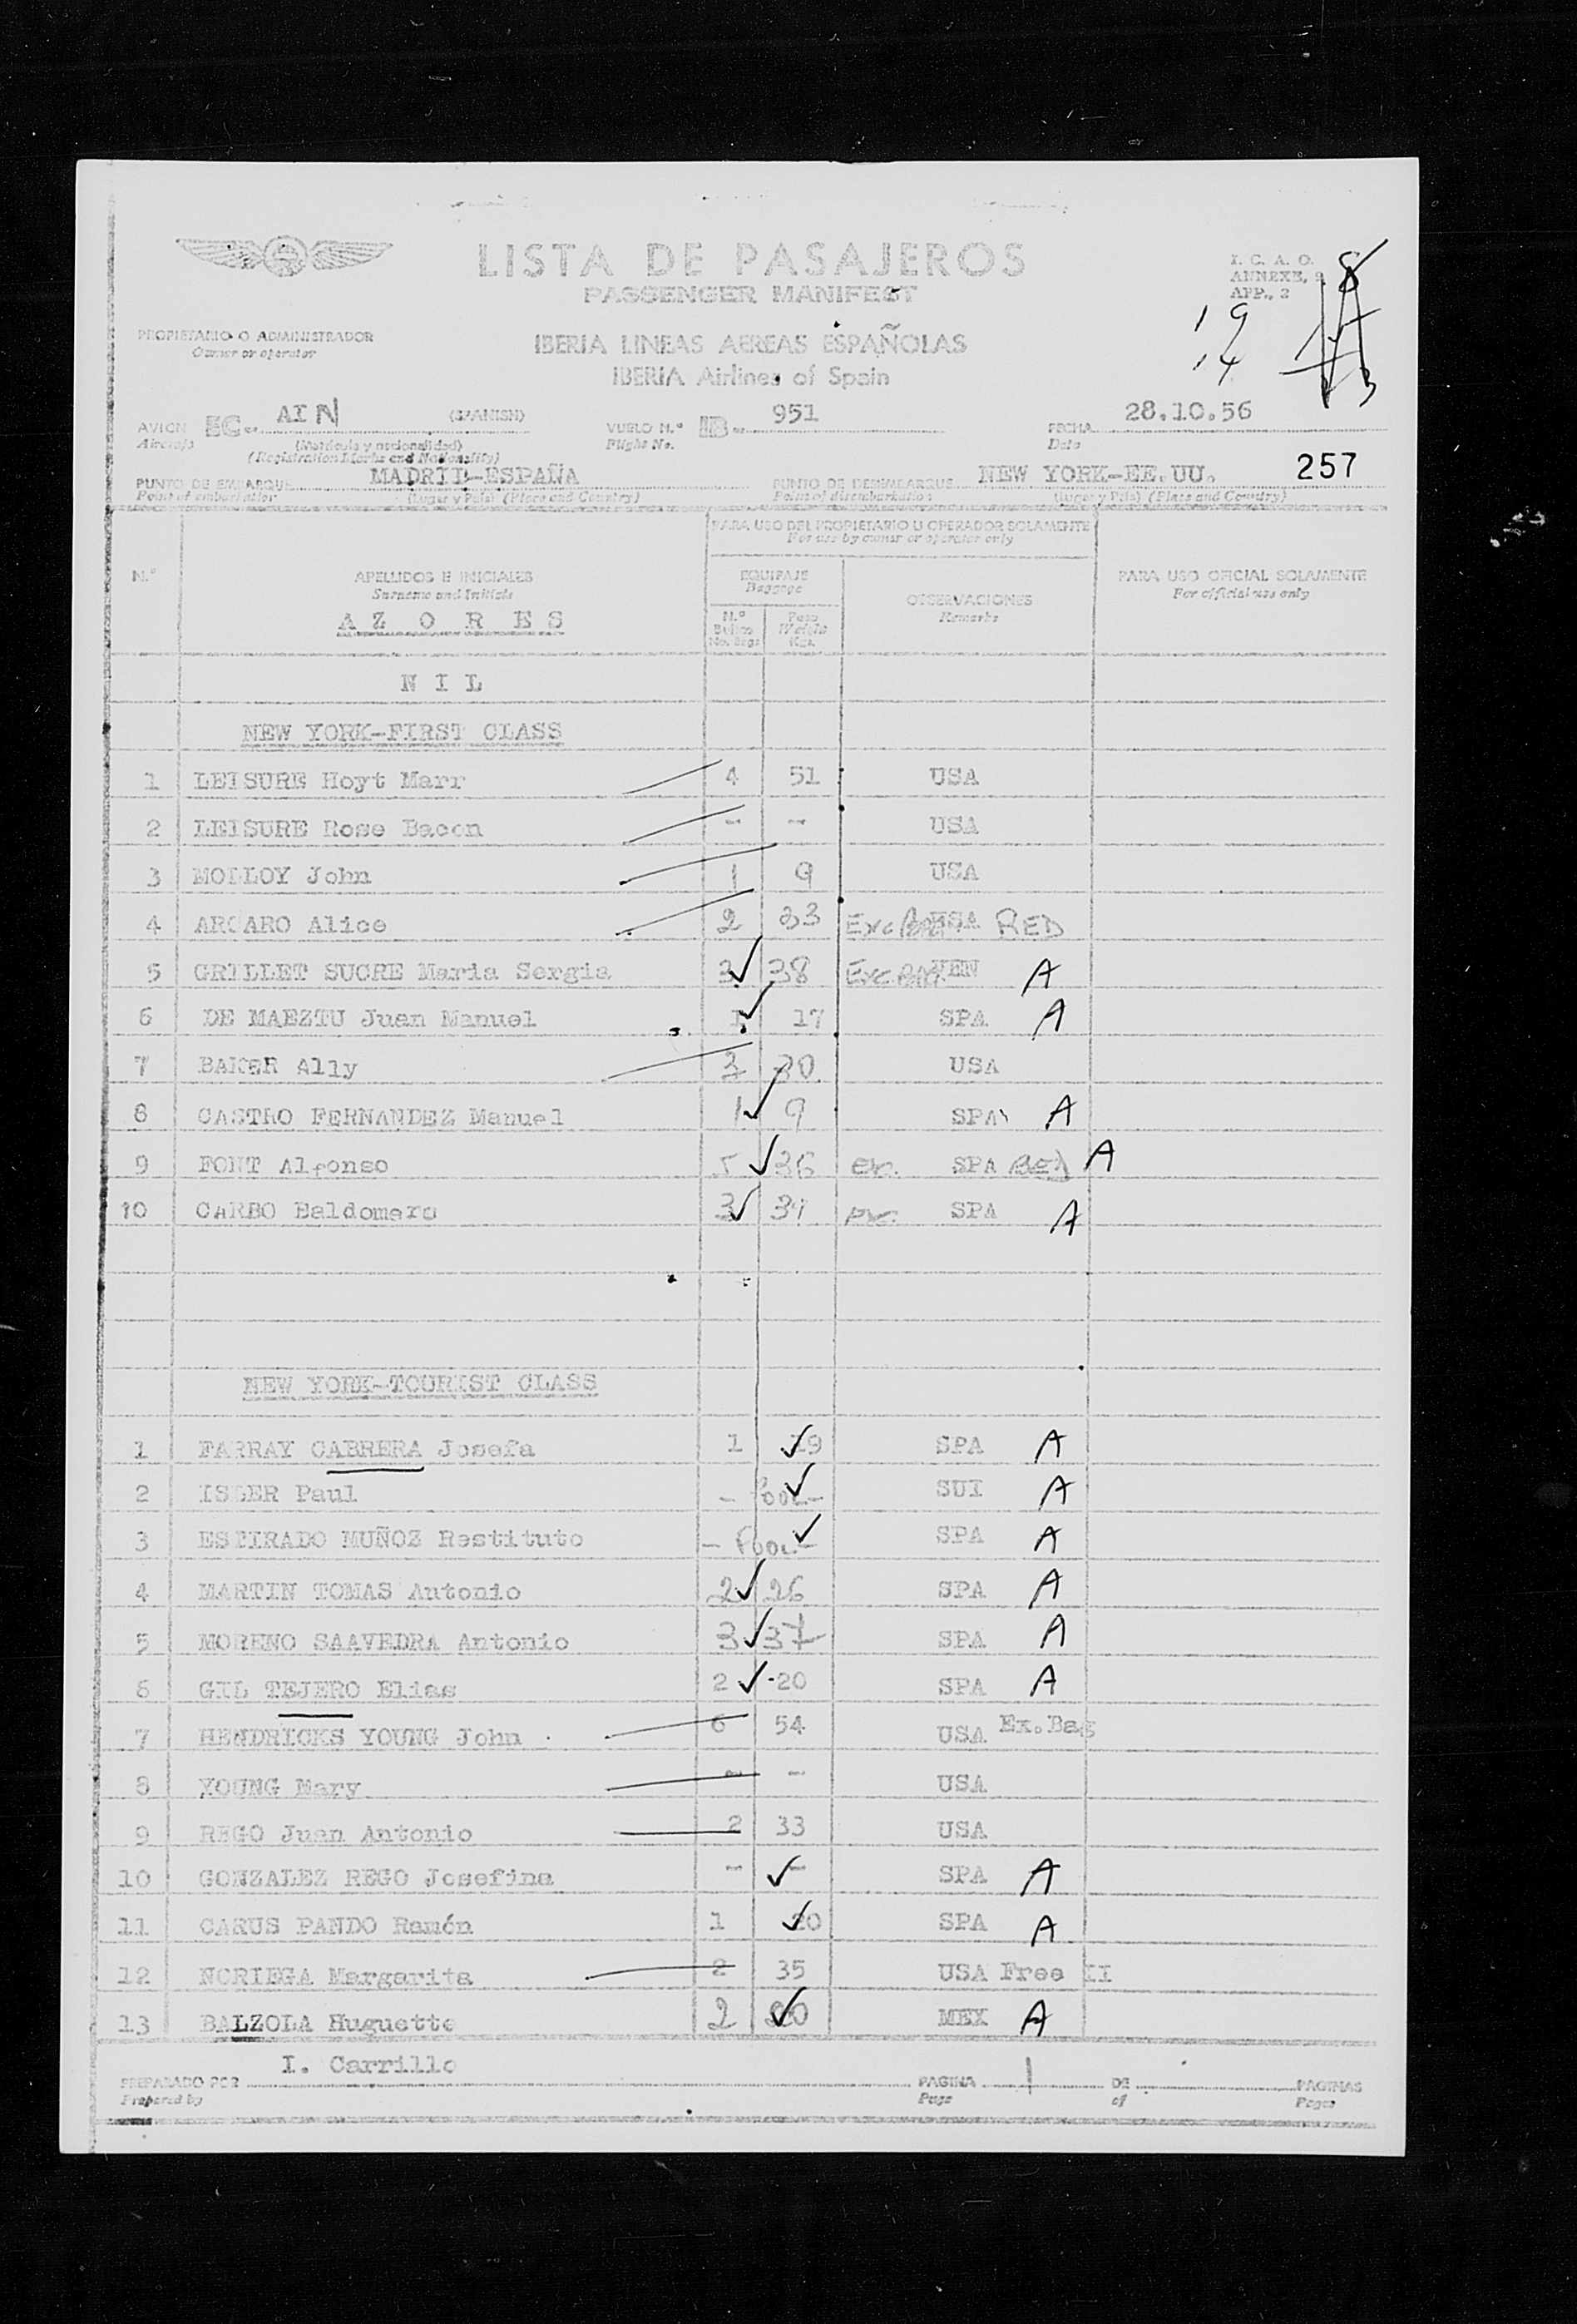 LISTA DE PASAJEROS
PASSENGER MANIFEST
I. C. A. O.
ANNEXE, 9
APP., 2
8
19
14
PROPIETARIO O ADMINISTRADOR
Owner or operator
IBERIA LINEAS AEREAS ESPAÑOLAS
IBERIA Airlines of Spain
AVION EC- AIN (SPANISH) VUELO N.º IB- 951 FECHA 28.10.56
Aircraft (Matrícula y nacionalidad) Flight No. Date
(Registration Marks and Nationality)
PUNTO DE EMBARQUE MADRID-ESPAÑA PUNTO DE DESEMBARQUE NEW YORK-EE.UU. 257
Point of embarkation (Lugar y País) (Place and Country) Point of disembarkation (Lugar y País) (Place and Country)
PARA USO DEL PROPIETARIO U OPERADOR SOLAMENTE
For use by owner or operator only
N.º APELLIDOS E INICIALES EQUIPAJE OBSERVACIONES PARA USO OFICIAL SOLAMENTE
Surname and Initials Baggage Remarks For official use only
A Z O R E S N.º Bultos No. Bags Peso Weight Kgs.
N I L
NEW YORK-FIRST CLASS
1 LEISURE Hoyt Marr 4 51 USA
2 LEISURE Rose Bacon - - USA
3 MOLLOY John 1 9 USA
4 ARCARO Alice 2 33 Exc USA RED
5 GRILLET SUCRE Maria Sergia 3 38 Exc VEN A
6 DE MAEZTU Juan Manuel 1 17 SPA A
7 BAKER Ally 3 30 USA
8 CASTRO FERNANDEZ Manuel 1 9 SPA A
9 FONT Alfonso 5 36 ex. SPA RED A
10 CARBO Baldomero 3 34 SPA A
NEW YORK-TOURIST CLASS
1 FARRAY CABRERA Josefa 1 19 SPA A
2 ISLER Paul - Pool - SUI A
3 ESTIRADO MUÑOZ Restituto - Pool - SPA A
4 MARTIN TOMAS Antonio 2 26 SPA A
5 MORENO SAAVEDRA Antonio 3 37 SPA A
6 GIL TEJERO Elias 2 20 SPA A
7 HENDRICKS YOUNG John 6 54 USA Ex.Bag
8 YOUNG Mary - - USA
9 REGO Juan Antonio 2 33 USA
10 GONZALEZ REGO Josefina - - SPA A
11 CARUS PANDO Ramón 1 20 SPA A
12 NORIEGA Margarita 2 35 USA Free II
13 BALZOLA Huguette 2 20 MEX A
PREPARADO POR I. Carrillo PAGINA 1 DE PAGINAS
Prepared by Page of Pages